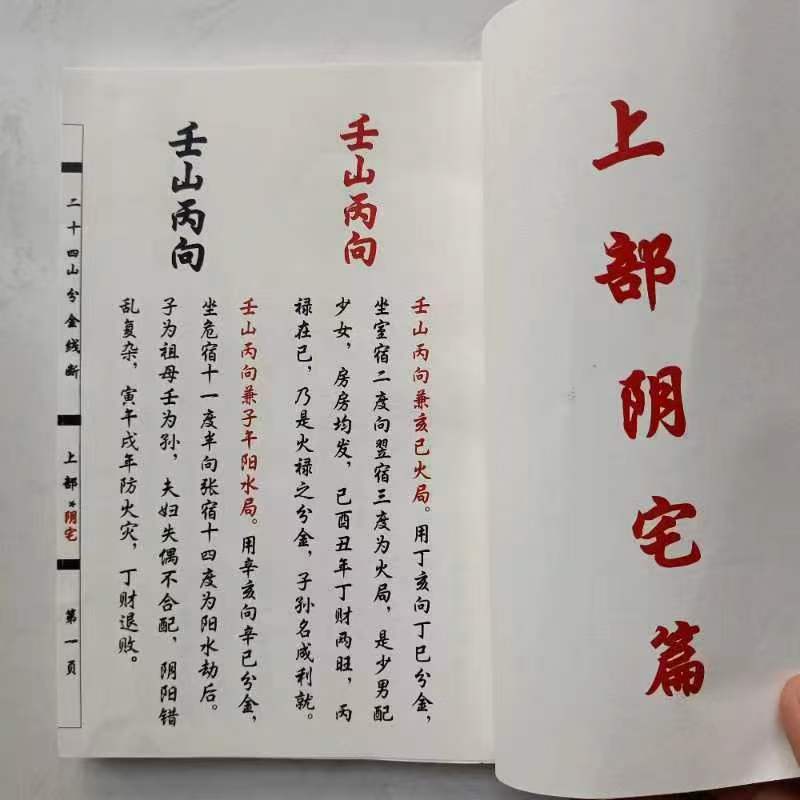 上部阴宅篇
壬山丙向
壬山丙向兼亥巳火局。用丁亥向丁巳分金，
坐室宿二度向翌宿三度为火局，是少男配
少女，房房均发，巳酉丑年丁财两旺，丙
禄在巳，乃是火禄之分金，子孙名成利就。
壬山丙向
壬山丙向兼子午阳水局。用辛亥向辛巳分金，
坐危宿十一度半向张宿十四度为阳水劫后。
子为祖母壬为孙，夫妇失偶不合配，阴阳错
乱复杂，寅午戌年防火灾，丁财退败。
二十四山分金线断
上部*阴宅
第一页